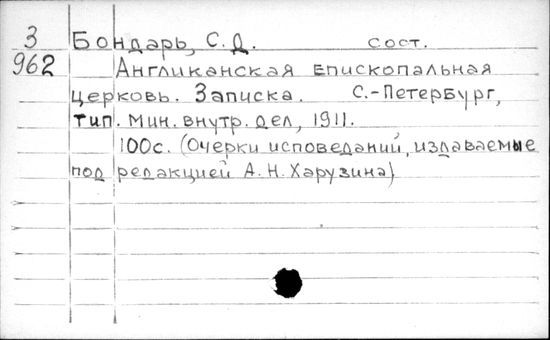 3 Бондарь, С.Д. сост.
962 Англиканская епископальная
церковь. Записка. С.-Петербург,
тип. мин. внутр. дел, 1911.
100с. (Очерки исповеданий, издаваемые
под редакцией А.Н. Харузина)